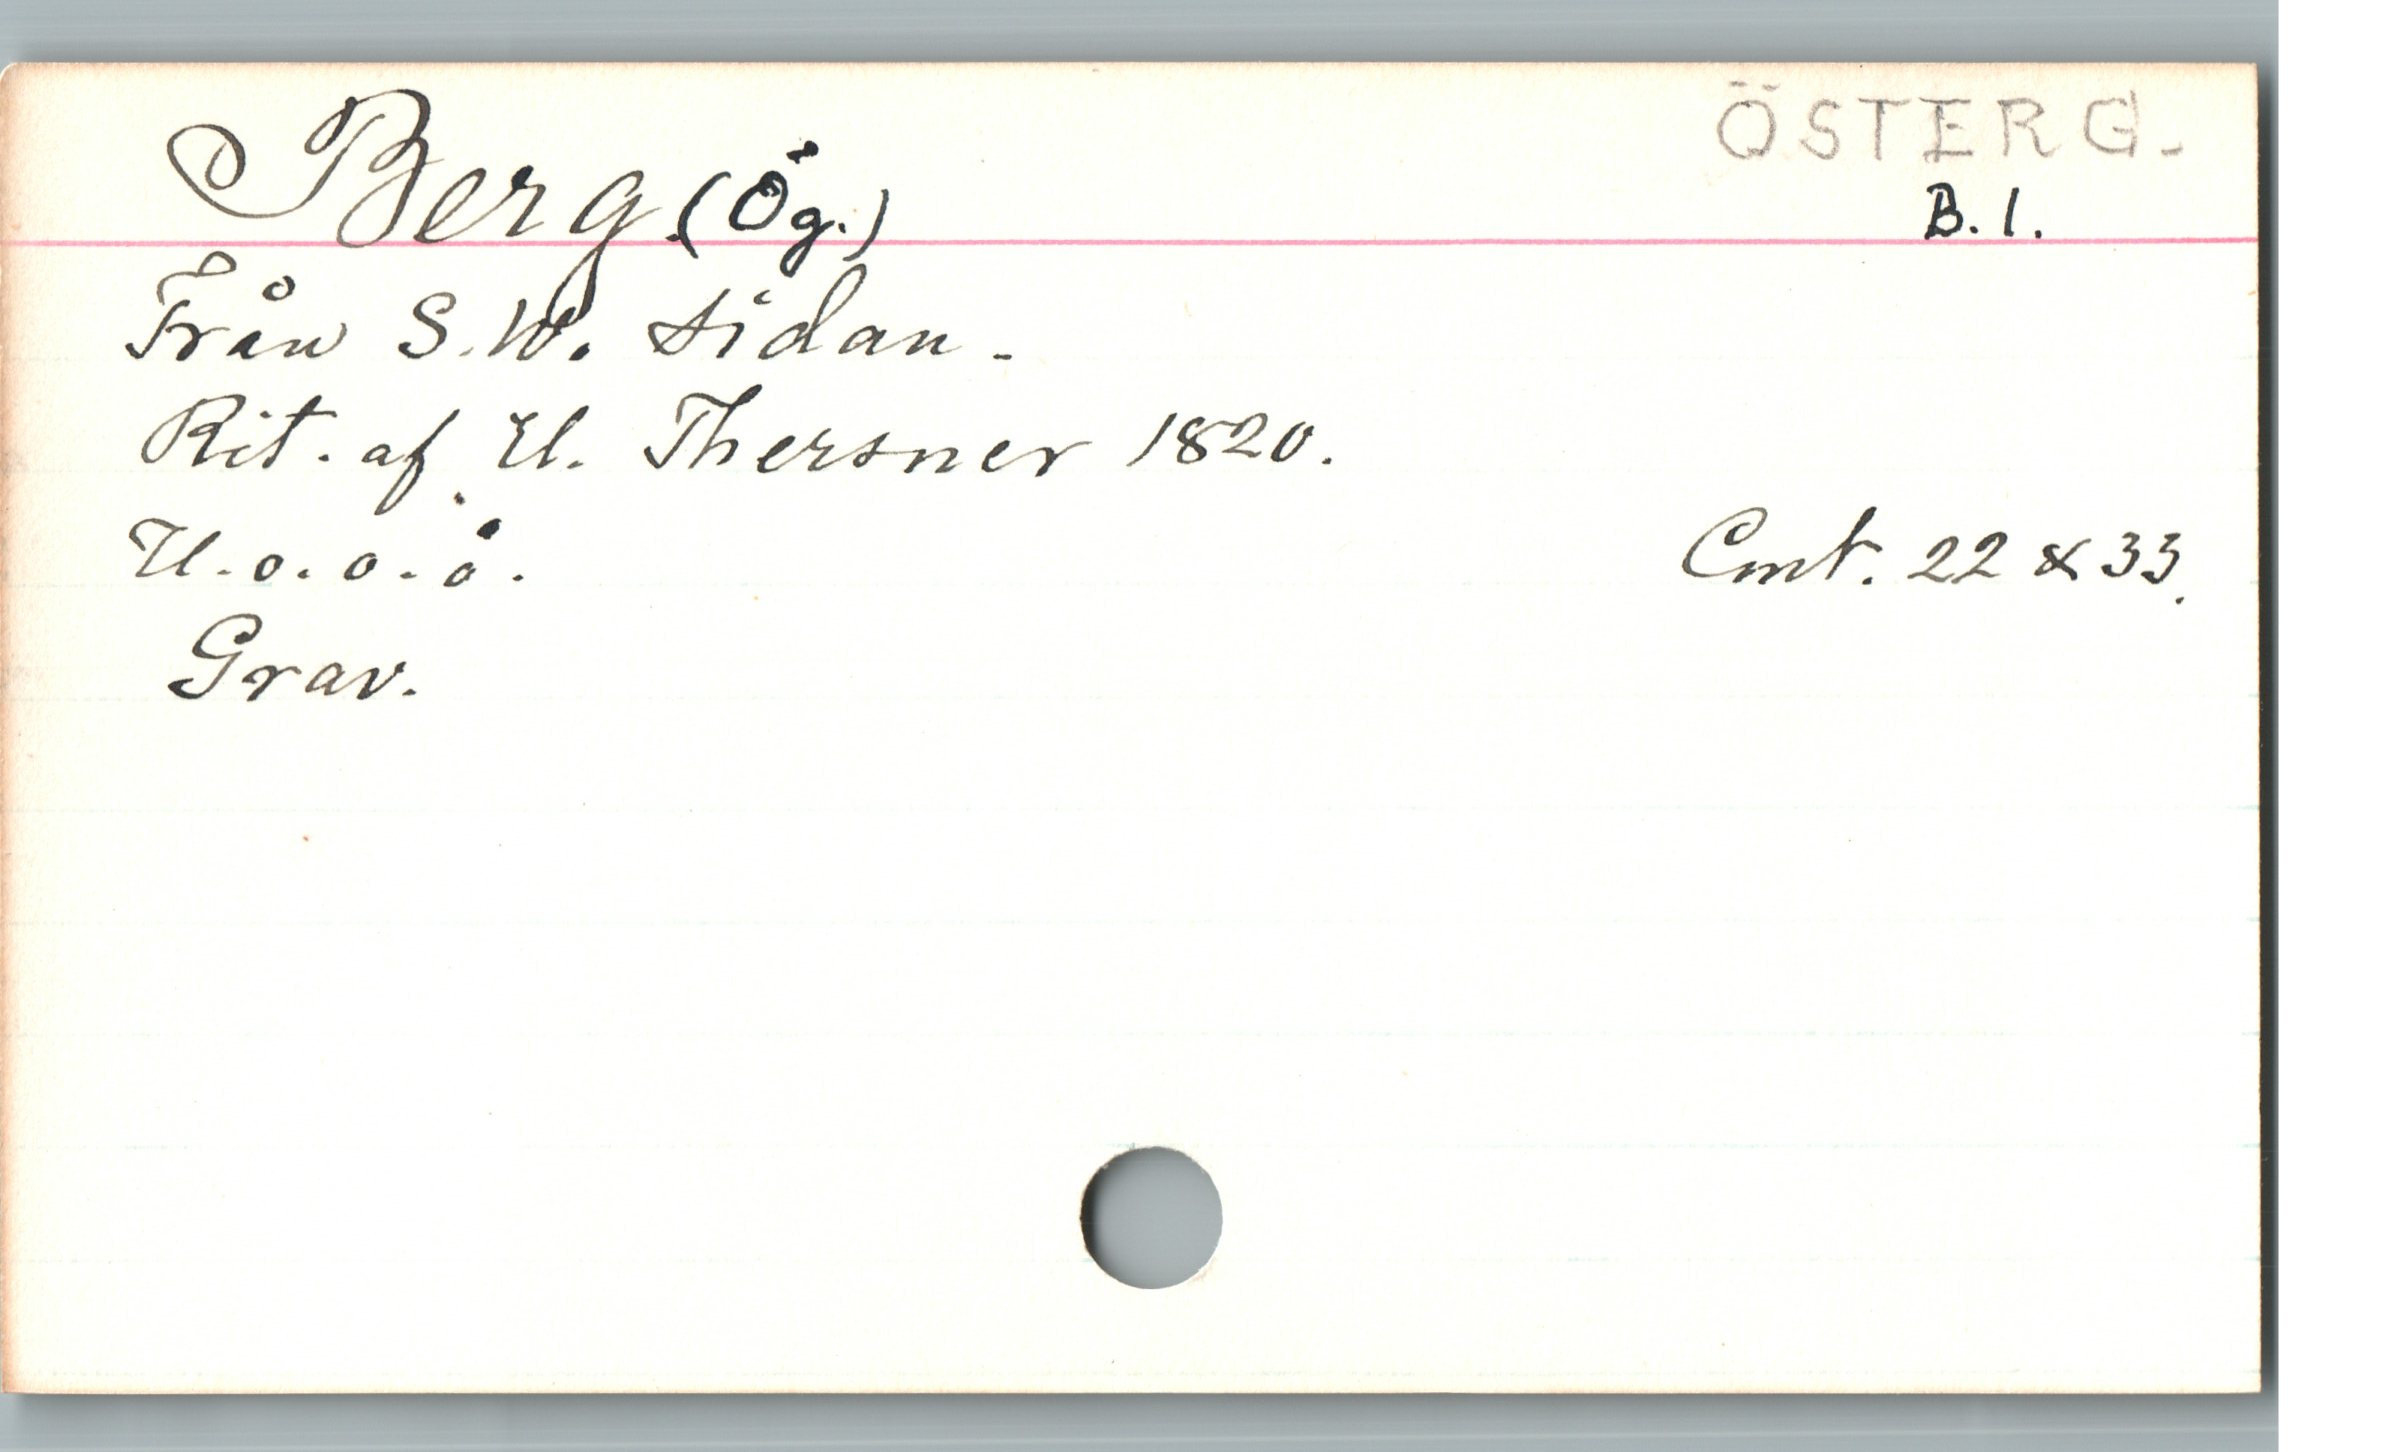 ÖSTERG.
Berg (Ög.)
B. 1.
Från S. W. sidan.
Rit. af U. Thersner 1820.
U. o. o. å.
Cmt. 22 x 33.
Grav.